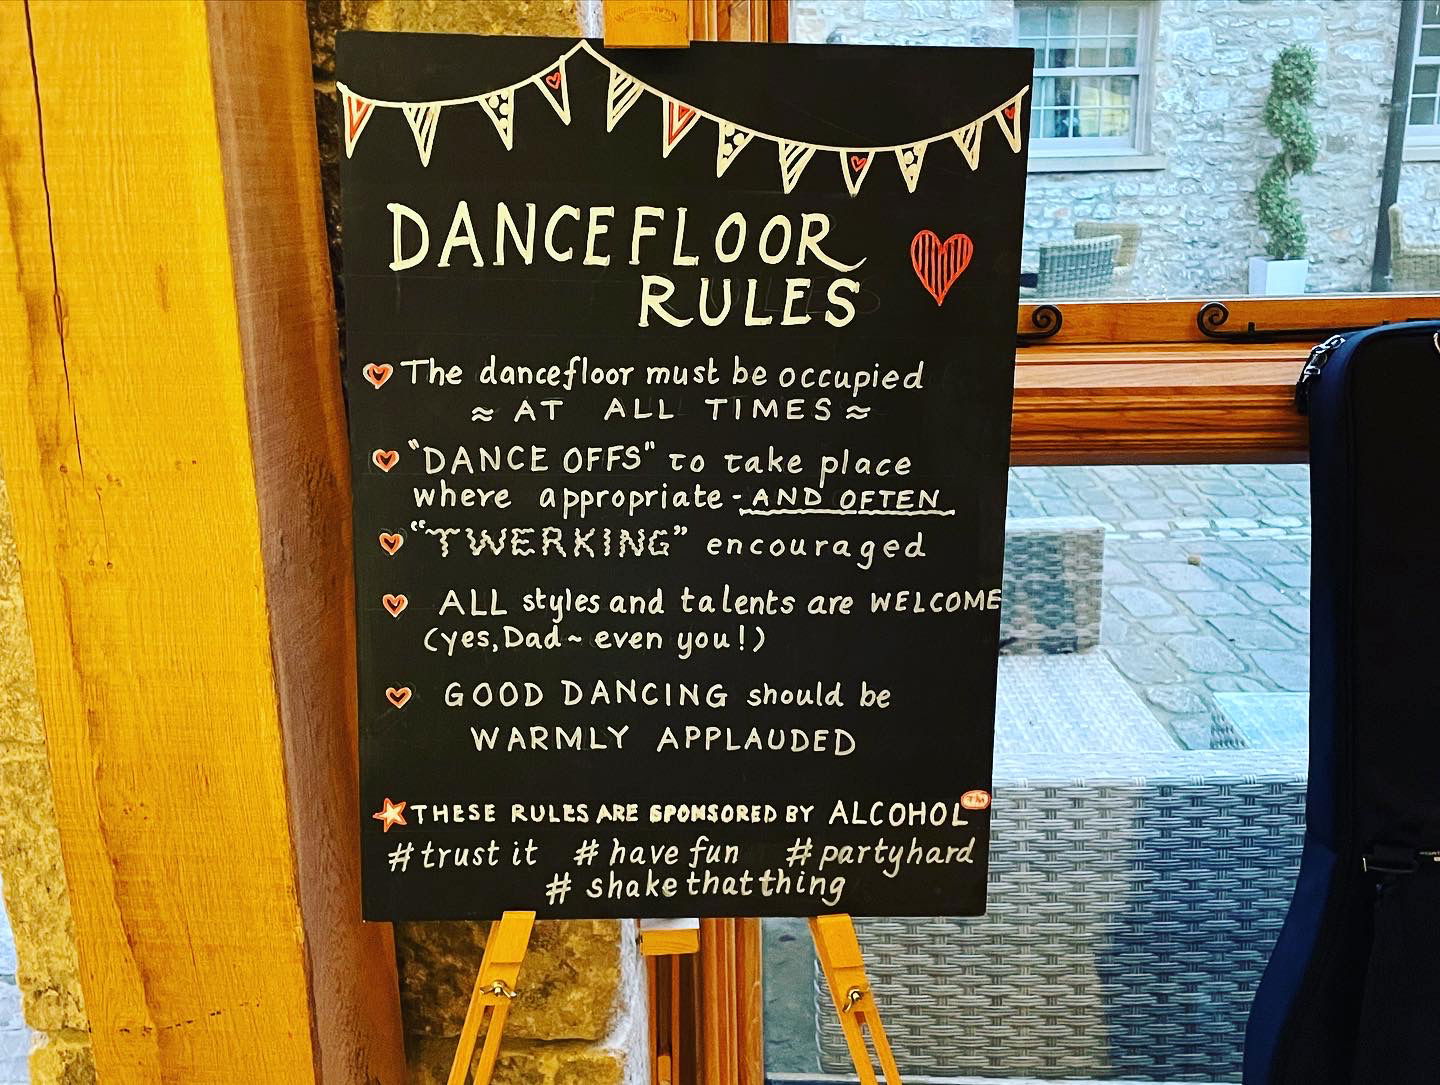 WINSOR & NEWTON
DANCEFLOOR
RULES
The dancefloor must be occupied
≈ AT ALL TIMES ≈
"DANCE OFFS" to take place
where appropriate - AND OFTEN
"TWERKING" encouraged
ALL styles and talents are WELCOME
(yes, Dad ~ even you!)
GOOD DANCING should be
WARMLY APPLAUDED
THESE RULES ARE SPONSORED BY ALCOHOL TM
#trust it # have fun #partyhard
# shakethatthing